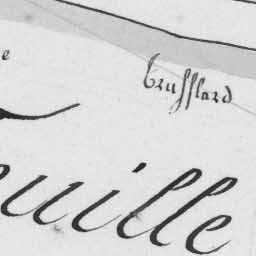 e
brufflard
uille